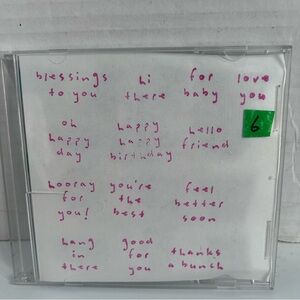 blessings hi for love
to you there baby you
6
oh happy hello
happy happy friend
day birthday
hooray you're feel
for the better
you! best soon
hang good thanks
in for a bunch
there you